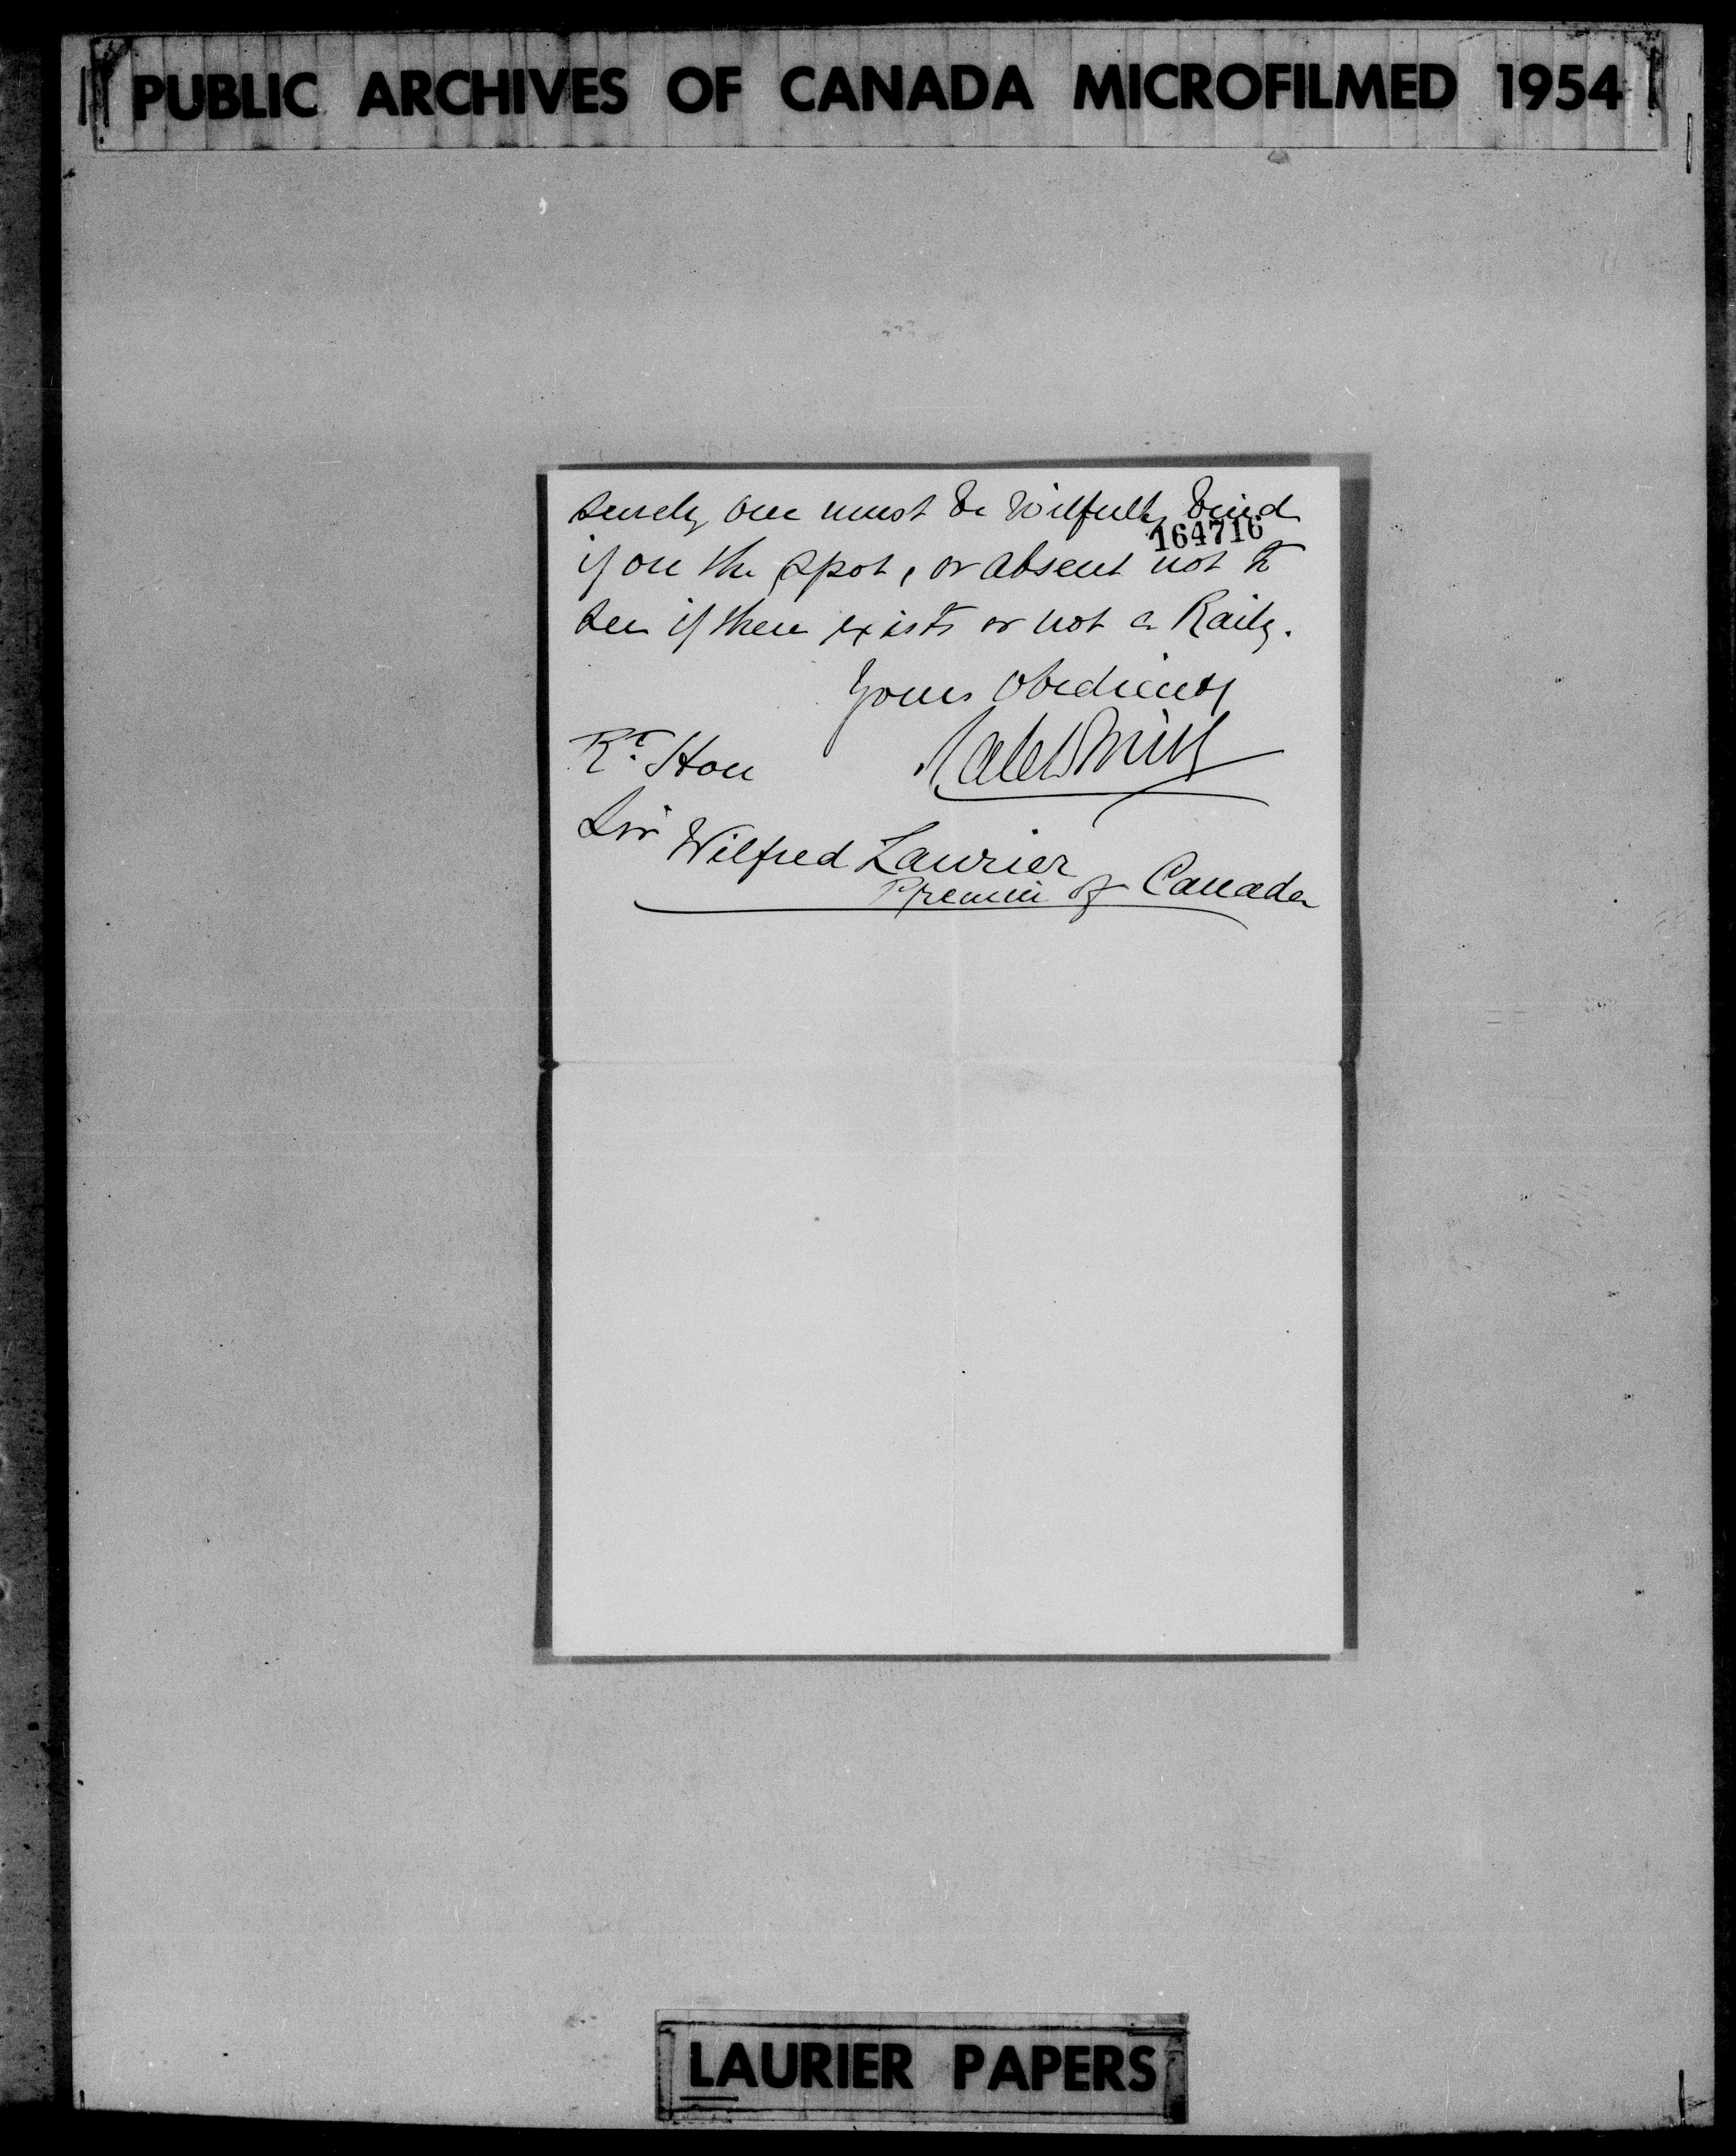 PUBLIC ARCHIVES OF CANADA MICROFILMED 1954
surely one must be wilfully blind
164716
if on the spot, or absent not to
see if there exists or not a Raily.
Yours obediently
Rt. Hon
Sir Wilfred Laurier
Premier of Canada
LAURIER PAPERS